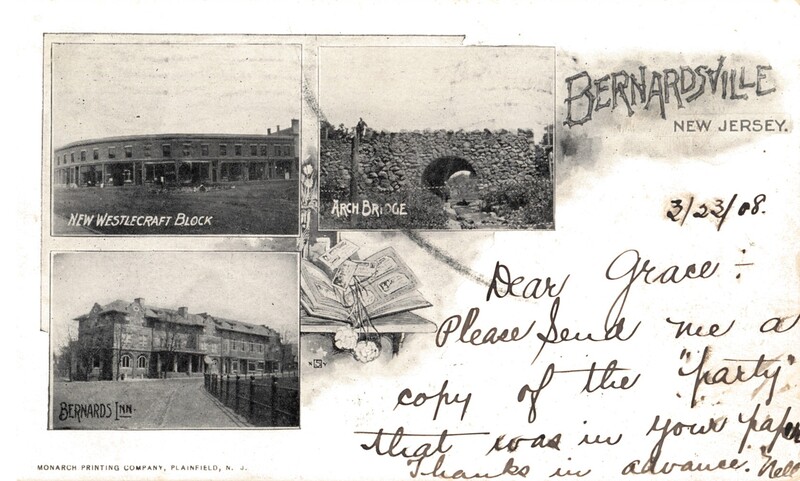 BERNARDSVILLE
NEW JERSEY.
NEW WESTLECRAFT BLOCK
ARCH BRIDGE
BERNARDS INN
3/23/08.
Dear Grace :-
Please Send me a
copy of the "party"
that was in your paper
Thanks in advance. "Nell
MONARCH PRINTING COMPANY, PLAINFIELD, N. J.